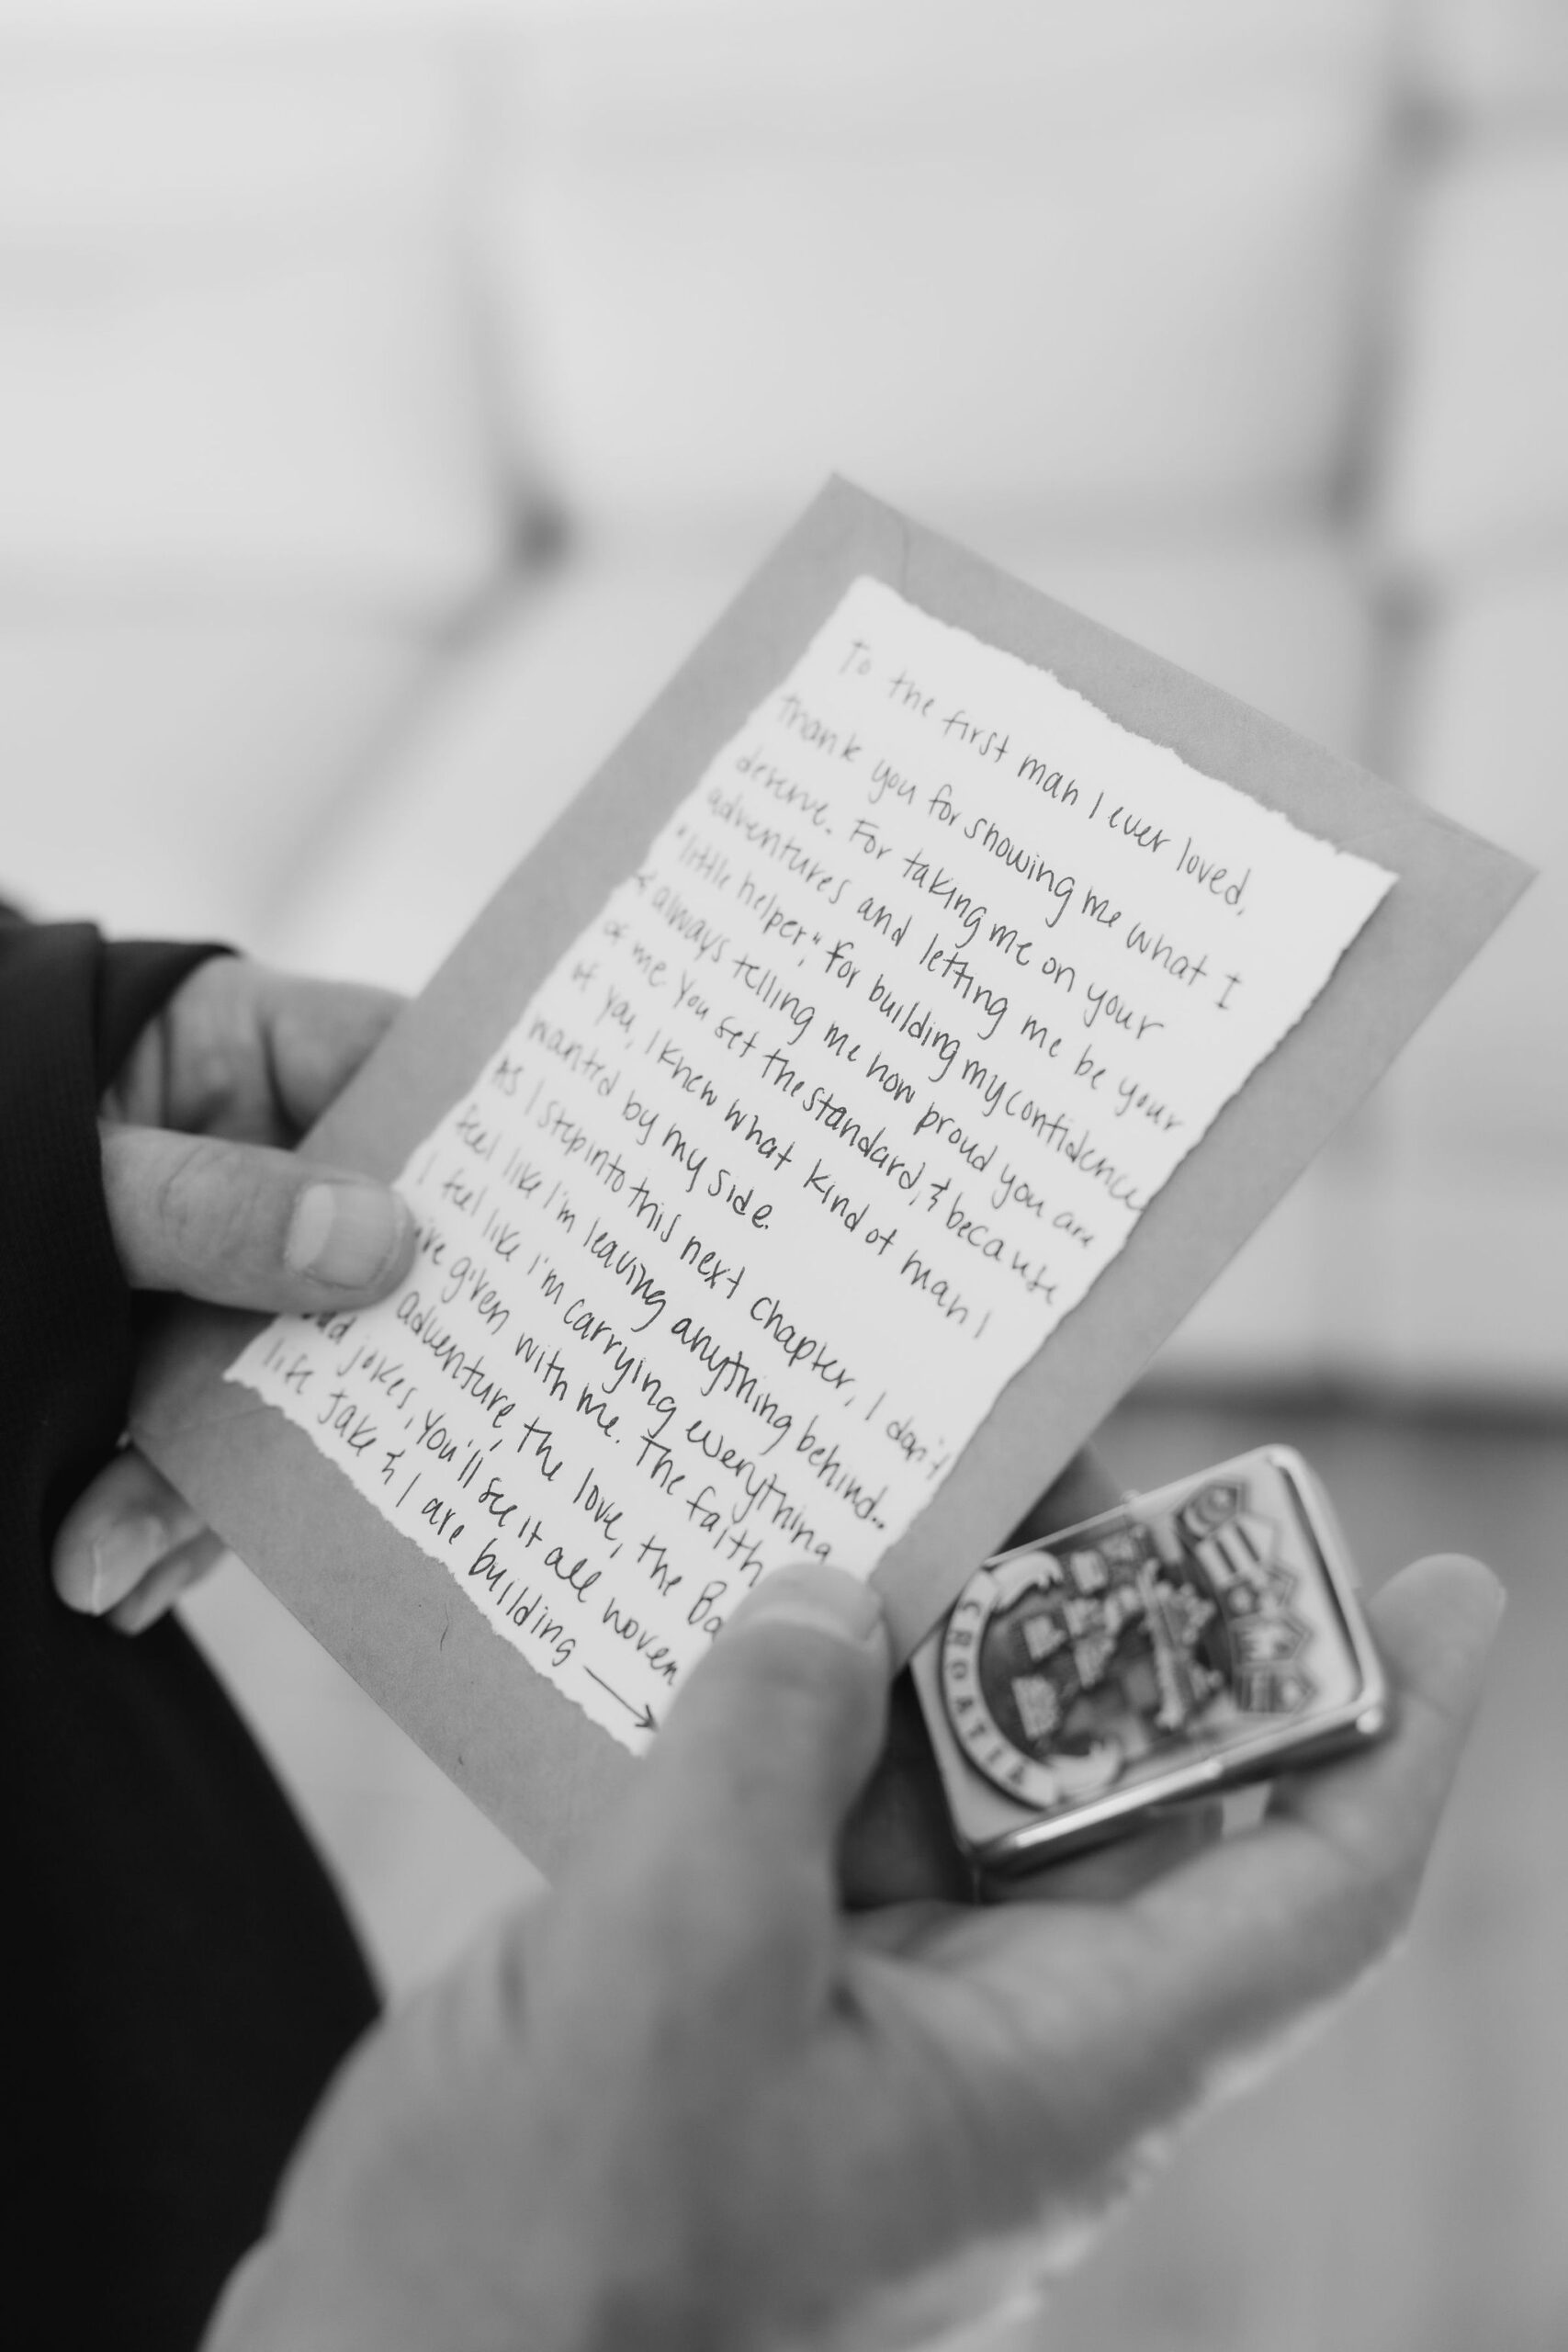 To the first man I ever loved,
Thank you for showing me what I
deserve. For taking me on your
adventures and letting me be your
"little helper". For building my confidence
& always telling me how proud you are
of me. You set the standard, & because
of you, I knew what kind of man I
wanted by my side.
As I step into this next chapter, I don't
feel like I'm leaving anything behind...
I feel like I'm carrying everything
given with me. The faith
adventure, the love, the
jokes, You'll see it all woven
life Jake & I are building →
CROATIA